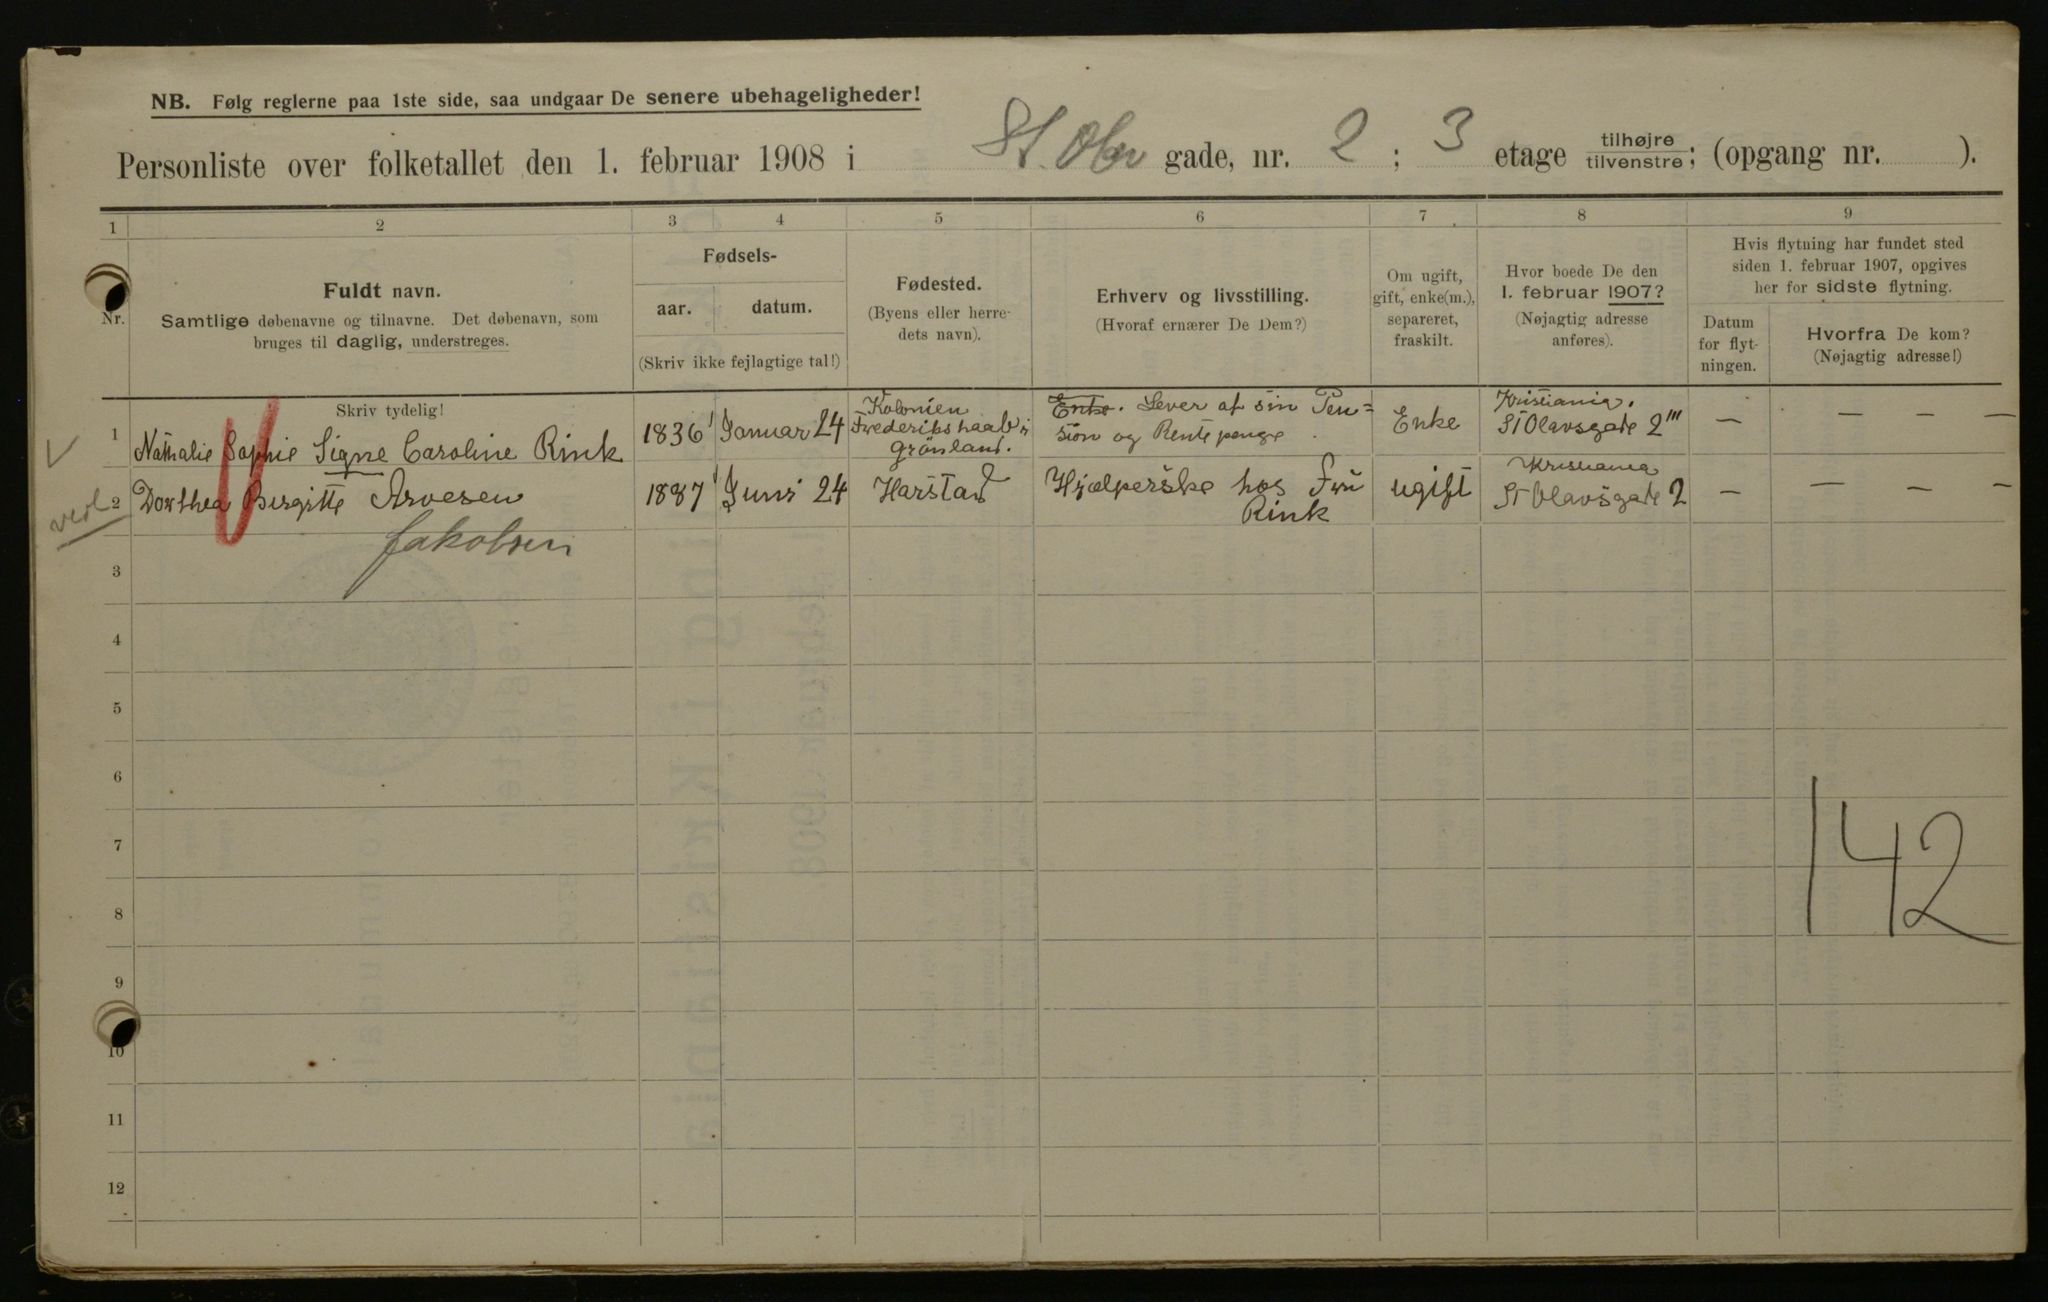 NB. Følg reglerne paa 1ste side, saa undgaar De senere ubehageligheder!
Personliste over folketallet den 1. februar 1908 i St. Olav gade, nr. 2 ; 3 etage tilhøjre tilvenstre ; (opgang nr. ).
1 2 3 4 5 6 7 8 9
Nr.
Fuldt navn.
Samtlige døbenavne og tilnavne. Det døbenavn, som
bruges til daglig, understreges.
Skriv tydelig!
Fødsels-
aar. datum.
(Skriv ikke fejlagtige tal!)
Fødested.
(Byens eller herre-
dets navn).
Erhverv og livsstilling.
(Hvoraf ernærer De Dem?)
Om ugift,
gift, enke(m.),
separeret,
fraskilt.
Hvor boede De den
1. februar 1907?
(Nøjagtig adresse
anføres).
Hvis flytning har fundet sted
siden 1. februar 1907, opgives
her for sidste flytning.
Datum
for flyt-
ningen.
Hvorfra De kom?
(Nøjagtig adresse!)
Kolonien Enke. Lever af sin Pen= Kristiania.
1 Nathalie Sophie Signe Caroline Rink 1836 Januar 24 Frederikshaab i sion og Rentepenge Enke St Olavsgade 2''' — — — —
Grönland.
Kristiania
2 Dorthea Birgitte Arvesen 1887 Juni 24 Harstad Hjælperske hos Fru ugift St Olavsgade 2 — — — —
Rink
Jakobsen
3
4
5
6
7
142
8
9
10
11
12